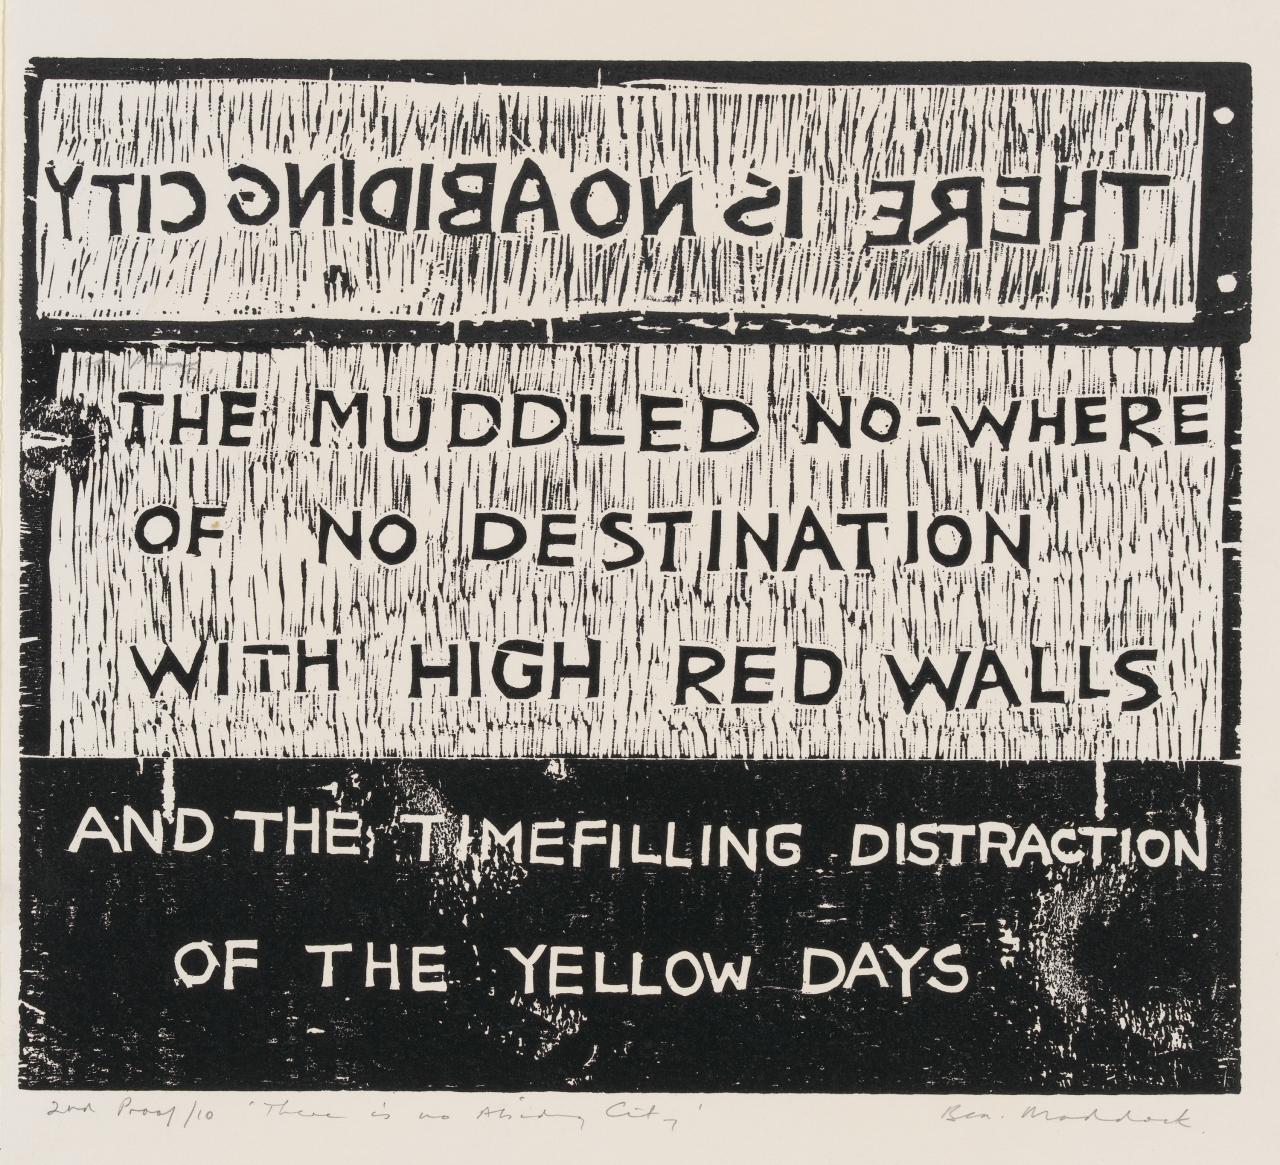 THERE IS NO ABIDING CITY
THE MUDDLED NO-WHERE
OF NO DESTINATION
WITH HIGH RED WALLS
AND THE TIMEFILLING DISTRACTION
OF THE YELLOW DAYS
2nd Proof/10 'There is no Abiding City' Bea. Maddock